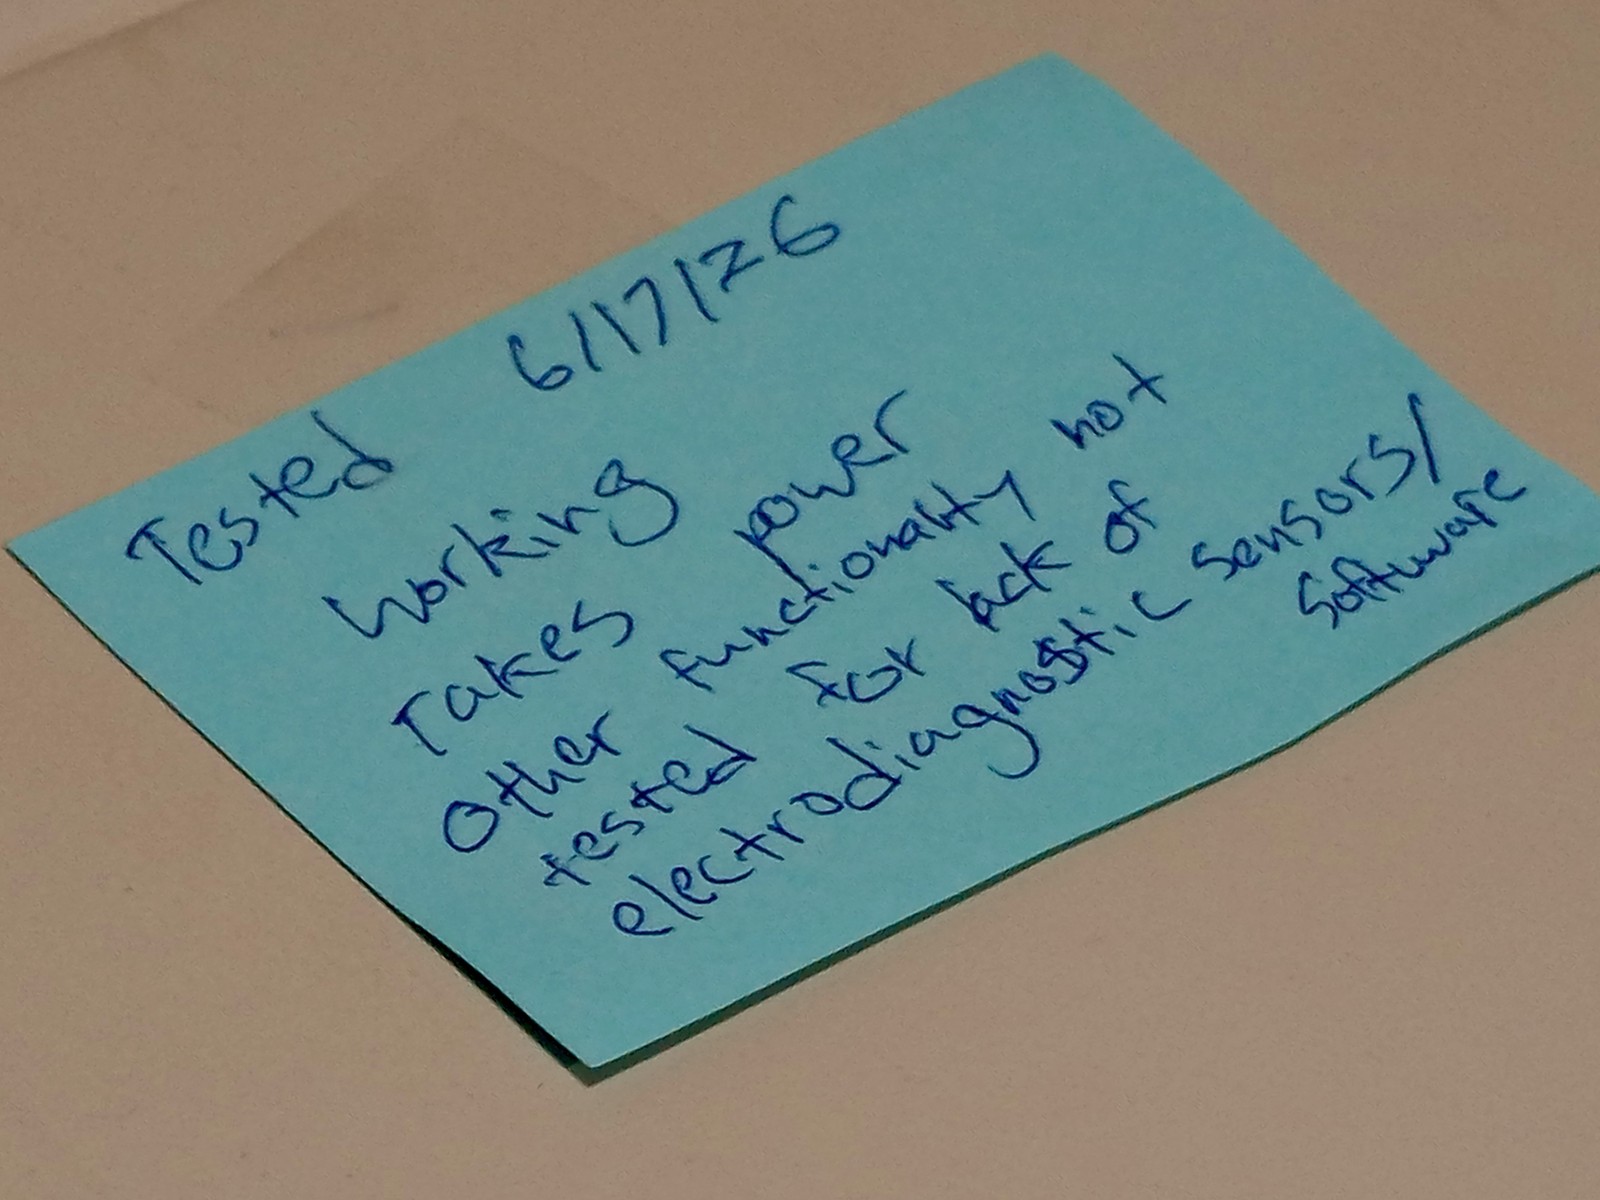 Tested 6/17/26
Working
Takes power
Other functionality not
tested for lack of
electrodiagnostic sensors/
software